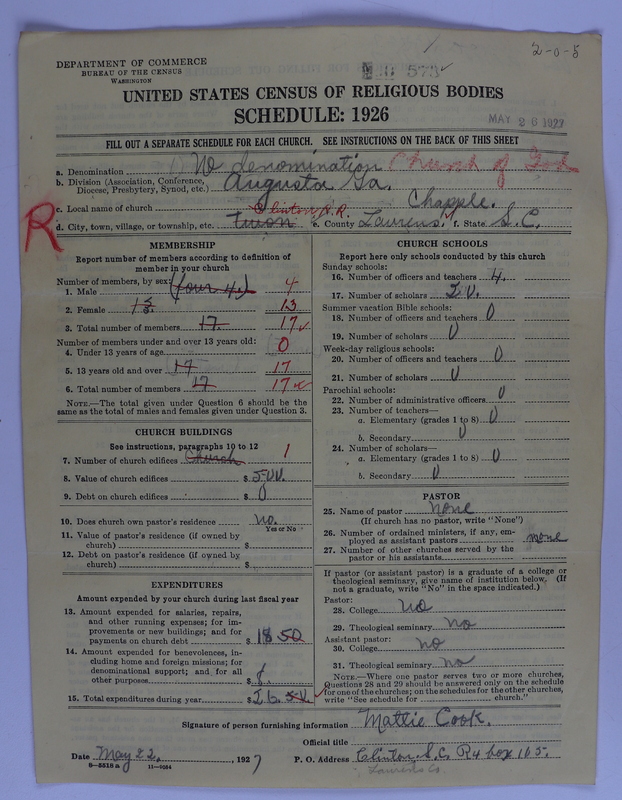 2-0-5
DEPARTMENT OF COMMERCE
BUREAU OF THE CENSUS
WASHINGTON
10 573
UNITED STATES CENSUS OF RELIGIOUS BODIES
SCHEDULE: 1926
MAY 26 1927
FILL OUT A SEPARATE SCHEDULE FOR EACH CHURCH. SEE INSTRUCTIONS ON THE BACK OF THIS SHEET
a. Denomination No denomination Church of God
b. Division (Association, Conference, Diocese, Presbytery, Synod, etc.) Augusta Ga.
c. Local name of church Chapple.
R
d. City, town, village, or township, etc. Clinton R.R. e. County Laurens f. State S.C.
MEMBERSHIP
Report number of members according to definition of
member in your church
Number of members, by sex:
1. Male (four 4.) 4
2. Female 13. 13
3. Total number of members 17. 17
Number of members under and over 13 years old:
4. Under 13 years of age 0
5. 13 years old and over 17 17
6. Total number of members 17 17
NOTE.—The total given under Question 6 should be the
same as the total of males and females given under Question 3.
CHURCH BUILDINGS
See instructions, paragraphs 10 to 12
7. Number of church edifices Church 1
8. Value of church edifices $
9. Debt on church edifices $ 0
10. Does church own pastor's residence no.
Yes or No
11. Value of pastor's residence (if owned by
church) $
12. Debt on pastor's residence (if owned by
church) $
EXPENDITURES
Amount expended by your church during last fiscal year
13. Amount expended for salaries, repairs,
and other running expenses; for im-
provements or new buildings; and for
payments on church debt $ 18 50
14. Amount expended for benevolences, in-
cluding home and foreign missions; for
denominational support; and for all
other purposes $
15. Total expenditures during year $
CHURCH SCHOOLS
Report here only schools conducted by this church
Sunday schools:
16. Number of officers and teachers 4.
17. Number of scholars
Summer vacation Bible schools:
18. Number of officers and teachers 0
19. Number of scholars 0
Week-day religious schools:
20. Number of officers and teachers 0
21. Number of scholars 0
Parochial schools:
22. Number of administrative officers 0
23. Number of teachers—
a. Elementary (grades 1 to 8) 0
b. Secondary 0
24. Number of scholars—
a. Elementary (grades 1 to 8) 0
b. Secondary 0
PASTOR
25. Name of pastor none
(If church has no pastor, write "None")
26. Number of ordained ministers, if any, em-
ployed as assistant pastors none
27. Number of other churches served by the
pastor or his assistants
If pastor (or assistant pastor) is a graduate of a college or
theological seminary, give name of institution below. (If
not a graduate, write "No" in the space indicated.)
Pastor:
28. College no
29. Theological seminary no
Assistant pastor:
30. College no
31. Theological seminary no
NOTE.—Where one pastor serves two or more churches,
Questions 28 and 29 should be answered only on the schedule
for one of the churches; on the schedules for the other churches,
write "See schedule for church."
Signature of person furnishing information Mattie Cook.
Official title
Date May 22, 1927 P. O. Address Clinton S.C. R4 box 165.
8-5516 a 11-9264 Laurens Co